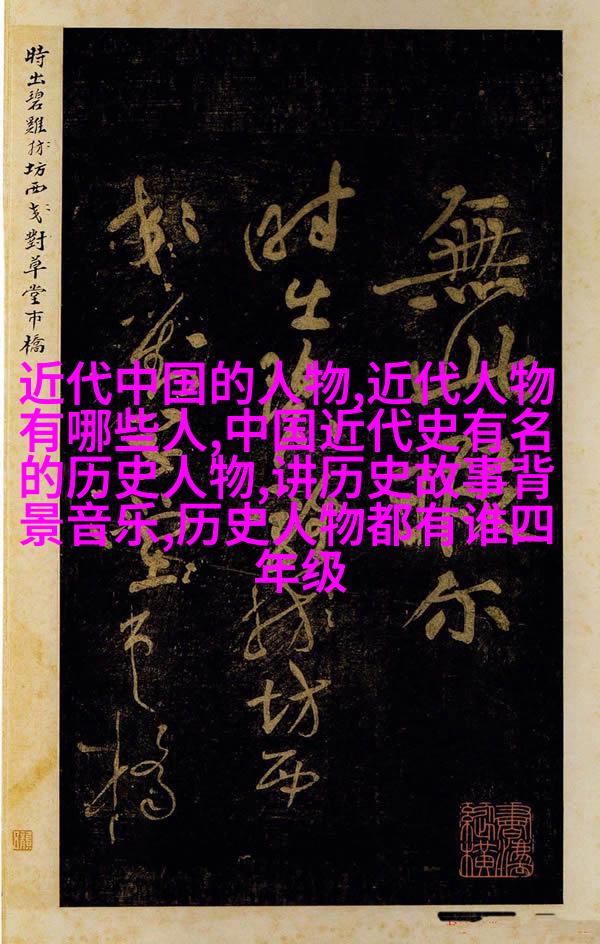 時出碧雞坊西對草堂市橋
無此尔
時出坊西
市橋
近代中国的人物,近代人物
有哪些人,中国近代史有名
的历史人物,讲历史故事背
景音乐,历史人物都有谁四
年级